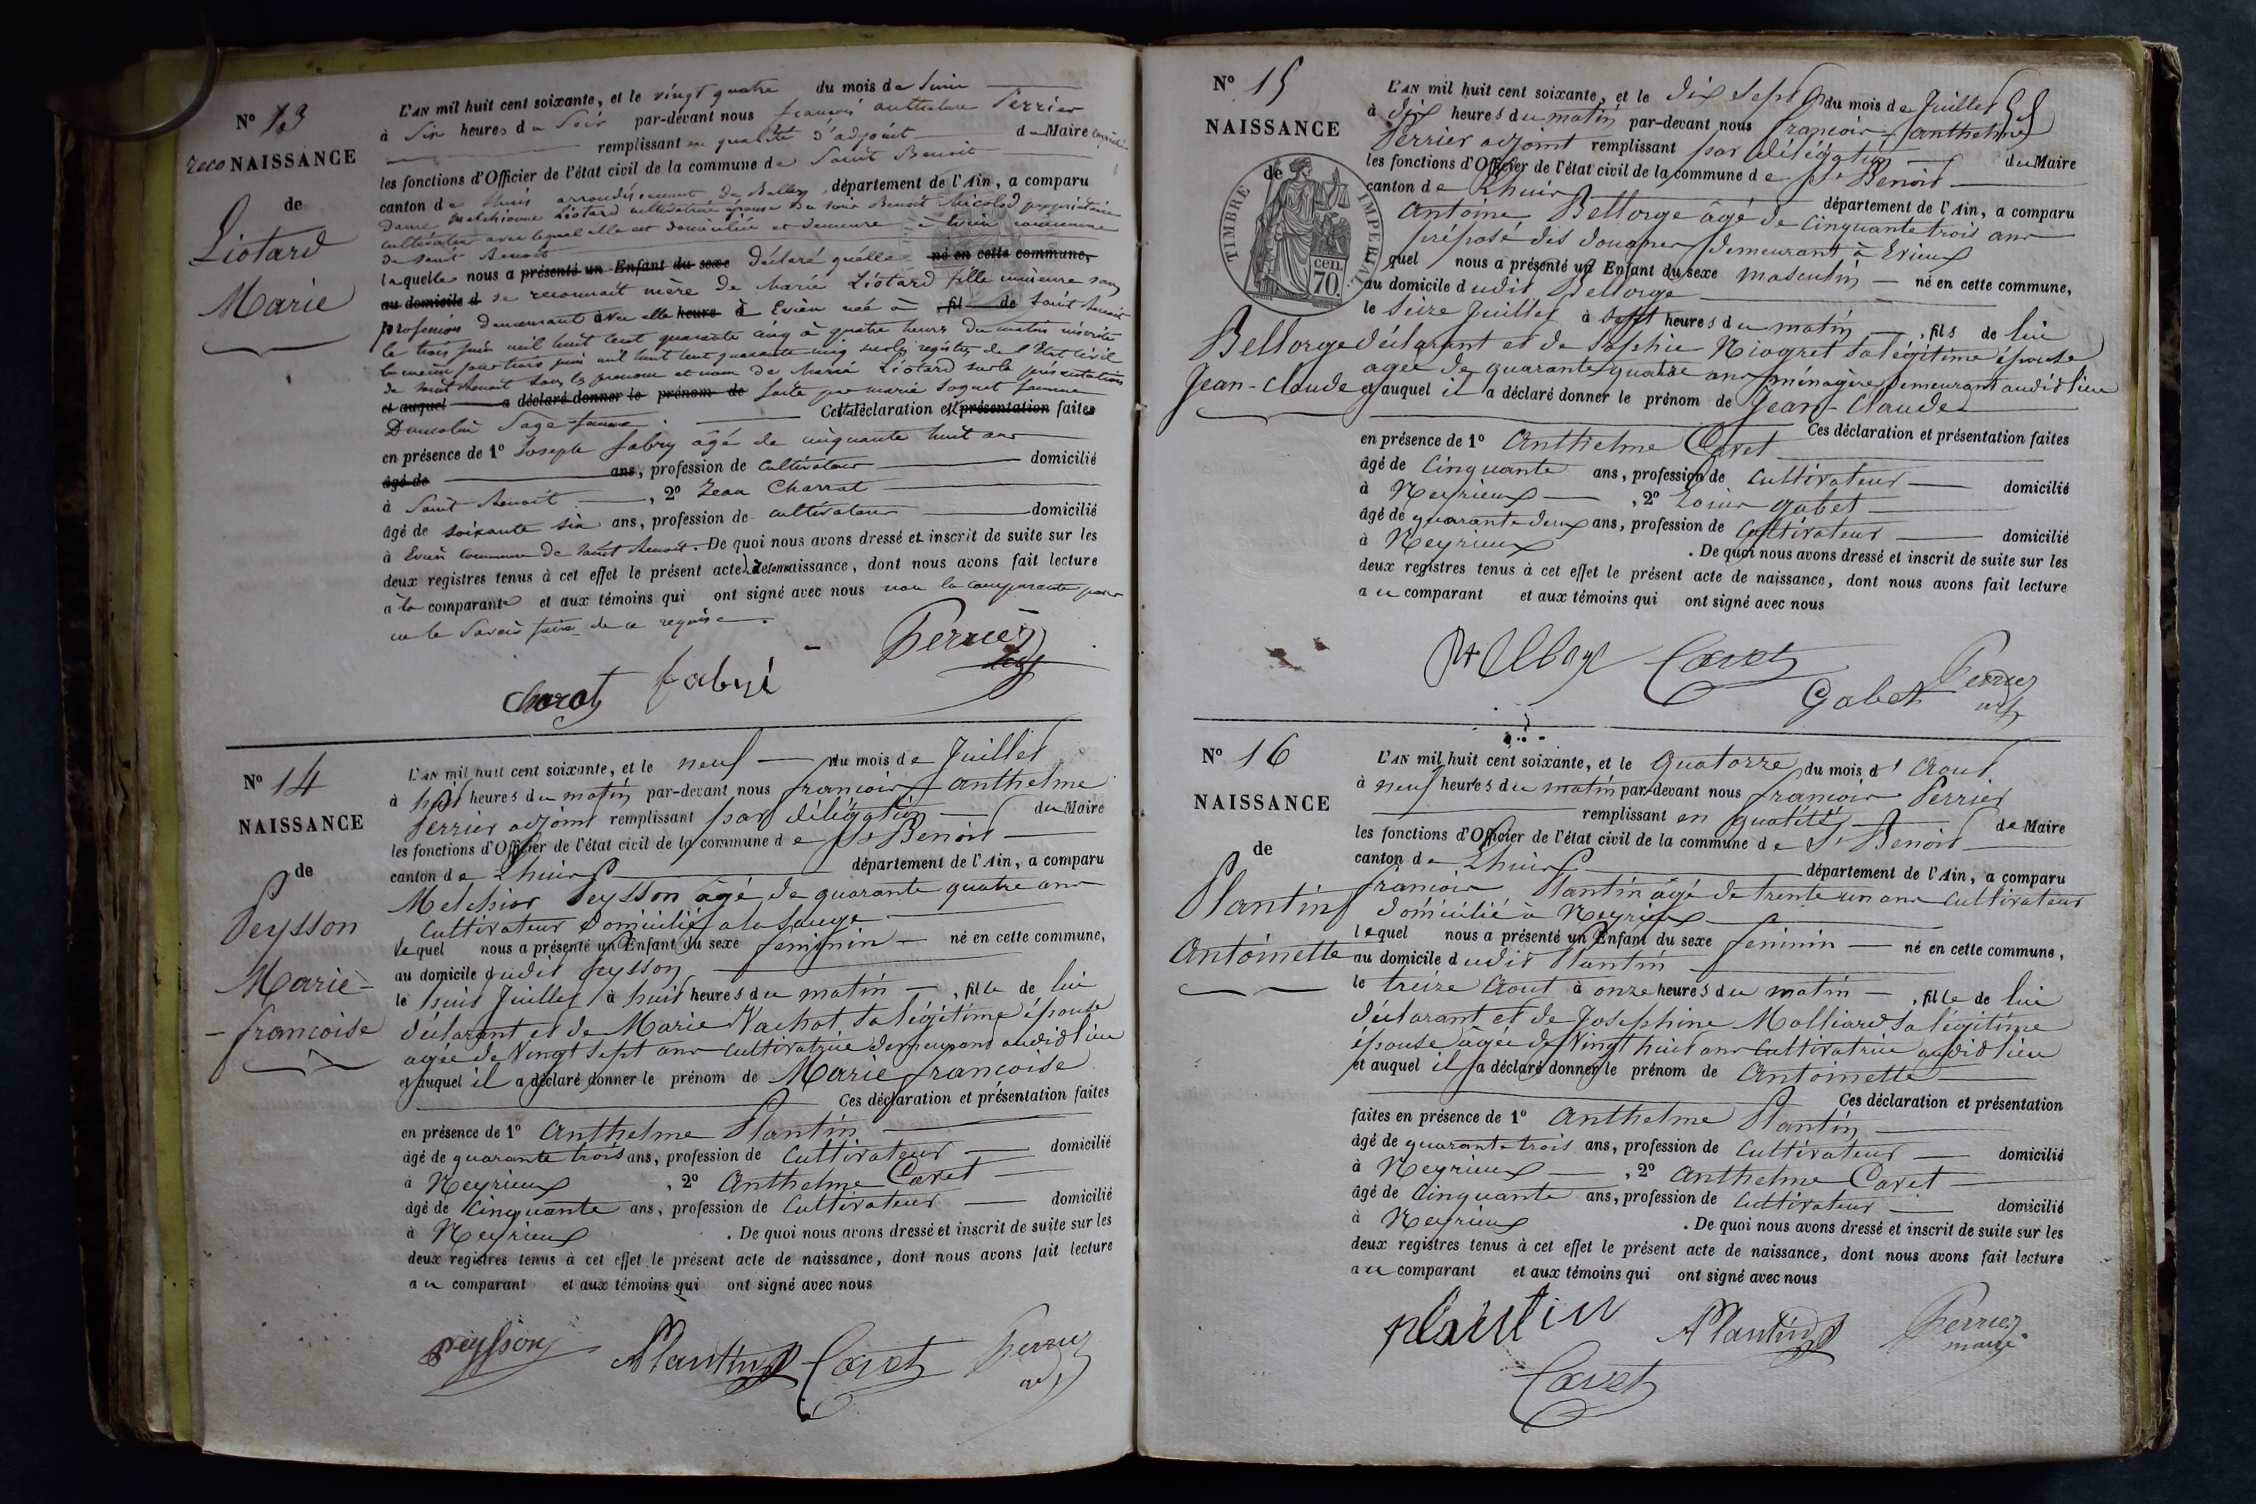 N° 13
reco NAISSANCE
de
Liotard
Marie
L'AN mil huit cent soixante, et le vingt quatre du mois de Juin
à Six heures du Soir par-devant nous françois anthelme Perrier
remplissant en qualité d'adjoint de Maire
les fonctions d'Officier de l'état civil de la commune de Saint Benoit
canton de Lhuis arrondissement de Belley, département de l'Ain, a comparu
dame Melchionne Liotard cultivatrice épouse du sieur Benoit Micolod propriétaire
cultivateur avec lequel elle est domiciliée et demeure à Evieu commune
de Saint Benoit
laquelle nous a présenté un Enfant du sexe déclaré qu'elle né en cette commune,
au domicile d se reconnait mère de Marie Liotard fille mineure sans
profession demeurant avec elle heure à Evieu née à fil de Saint Benoit
le trois juin mil huit cent quarante cinq à quatre heures du matin inscrite
le même jour trois juin mil huit cent quarante cinq sur les registres de l'Etat Civil
de Saint Benoit sous les prenom et nom de Marie Liotard sur la présentation
et auquel a déclaré donner le prénom de faite par marie Soguet femme
Cette déclaration et présentation faites
Sage-femme
en présence de 1° Joseph fabry âgé de cinquante huit ans
âgé de ans, profession de cultivateur domicilié
à Saint Benoit, 2° Jean Charrat
âgé de soixante six ans, profession de cultivateur domicilié
à Evieu commune de Saint Benoit. De quoi nous avons dressé et inscrit de suite sur les
deux registres tenus à cet effet le présent acte de reconnaissance, dont nous avons fait lecture
à la comparante et aux témoins qui ont signé avec nous non la comparante pour
ne le Savoir faire de ce requise.
Perrier
adj
charat fabri
N° 14
NAISSANCE
de
Peysson
Marie-
-françoise
L'AN mil huit cent soixante, et le neuf du mois de Juillet
à huit heures du matin par-devant nous françois anthelme
Perrier adjoint remplissant par délégation du Maire
les fonctions d'Officier de l'état civil de la commune de St Benoit
canton de Lhuis département de l'Ain, a comparu
Melchior Peysson âgé de quarante quatre ans
Cultivateur domicilié a la Sauge
lequel nous a présenté un Enfant du sexe feminin né en cette commune,
au domicile dudit Peysson
le huit Juillet à huit heures du matin, fille de lui
déclarant et de Marie Vachot sa légitime épouse
agée de Vingt sept ans cultivatrice demeurant audit lieu
et auquel il a déclaré donner le prénom de Marie françoise
Ces déclaration et présentation faites
en présence de 1° Anthelme Plantin
âgé de quarante trois ans, profession de Cultivateur domicilié
à Neyrieux, 2° Anthelme Cavet
âgé de Cinquante ans, profession de Cultivateur domicilié
à Neyrieux. De quoi nous avons dressé et inscrit de suite sur les
deux registres tenus à cet effet le présent acte de naissance, dont nous avons fait lecture
au comparant et aux témoins qui ont signé avec nous
peysson APlantin Cavet Perrier
adj
N° 15
NAISSANCE
de
TIMBRE IMPERIAL
cen.
70.
Bellorge
Jean-Claude
L'AN mil huit cent soixante, et le dix sept du mois de Juillet
à dix heures du matin par-devant nous françois anthelme
Perrier adjoint remplissant par délégation du Maire
les fonctions d'Officier de l'état civil de la commune de St Benoit
canton de Lhuis département de l'Ain, a comparu
Antoine Bellorge âgé de Cinquante trois ans
préposé des douanes demeurant à Evieux
quel nous a présenté un Enfant du sexe masculin né en cette commune,
au domicile dudit Bellorge
le Seize Juillet à Sept heures du matin, fils de lui
déclarant et de Sophie Niogret sa légitime épouse
agée de quarante quatre ans ménagère demeurant audit lieu
et auquel il a déclaré donner le prénom de Jean-Claude
Ces déclaration et présentation faites
en présence de 1° Anthelme Cavet
âgé de Cinquante ans, profession de Cultivateur domicilié
à Neyrieux, 2° Louis Gabet
âgé de quarante deux ans, profession de Cultivateur domicilié
à Neyrieux. De quoi nous avons dressé et inscrit de suite sur les
deux registres tenus à cet effet le présent acte de naissance, dont nous avons fait lecture
au comparant et aux témoins qui ont signé avec nous
Cavet Perrier
Gabet adj
N° 16
NAISSANCE
de
Plantin
Antoinette
L'AN mil huit cent soixante, et le Quatorze du mois d'Aout
à neuf heures du matin par-devant nous françois Perrier
remplissant en qualité de Maire
les fonctions d'Officier de l'état civil de la commune de St Benoit
canton de Lhuis département de l'Ain, a comparu
françois Plantin âgé de trente un ans Cultivateur
domicilié à Neyrieux
lequel nous a présenté un Enfant du sexe feminin né en cette commune,
au domicile dudit Plantin
le treize Aout à onze heures du matin, fille de lui
déclarant et de Josephine Molliard sa légitime
épouse âgée de Vingt huit ans Cultivatrice audit lieu
et auquel il a déclaré donner le prénom de Antoinette
Ces déclaration et présentation
faites en présence de 1° Anthelme Plantin
âgé de quarante trois ans, profession de Cultivateur domicilié
à Neyrieux, 2° Anthelme Cavet
âgé de Cinquante ans, profession de Cultivateur domicilié
à Neyrieux. De quoi nous avons dressé et inscrit de suite sur les
deux registres tenus à cet effet le présent acte de naissance, dont nous avons fait lecture
au comparant et aux témoins qui ont signé avec nous
plantin APlantin Perrier
maire
Cavet